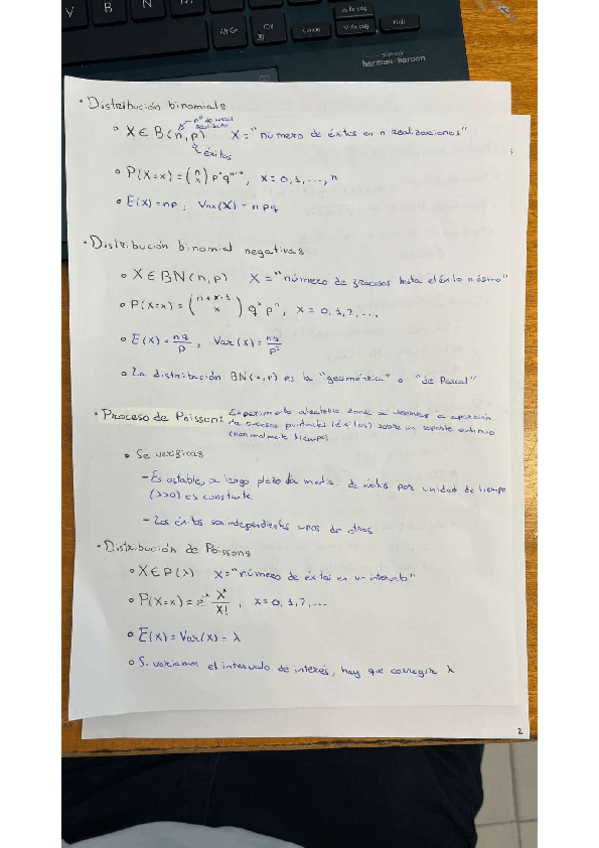 V B N
Alt Gr
Ctrl
Fin
harman/kardon
• Distribución binomial:
nº de veces realizado
• X ∈ B(n, p) X = "número de éxitos en n realizaciones"
éxitos
• P(X=x) = (n x) pˣ qⁿ⁻ˣ, x = 0, 1, ..., n
• E(X) = np; Var(X) = npq
• Distribución binomial negativa:
• X ∈ BN(n, p) X = "número de fracasos hasta el éxito n-ésimo"
• P(X=x) = (n+x-1 x) qˣ pⁿ, x = 0, 1, 2, ...
• E(X) = nq/p, Var(X) = nq/p²
• La distribución BN(1, p) es la "geométrica" o "de Pascal"
• Proceso de Poisson: Experimento aleatorio donde se observa la aparición
de sucesos puntuales (éxitos) sobre un soporte continuo
(normalmente tiempo).
• Se verifica:
- Es estable, a largo plazo la media de éxitos por unidad de tiempo
(λ>0) es constante.
- Los éxitos son independientes unos de otros
• Distribución de Poisson:
• X ∈ P(λ) X = "número de éxitos en un intervalo"
• P(X=x) = e^-λ λˣ/x!, x = 0, 1, 2, ...
• E(X) = Var(X) = λ
• Si variamos el intervalo de interés, hay que corregir λ
2